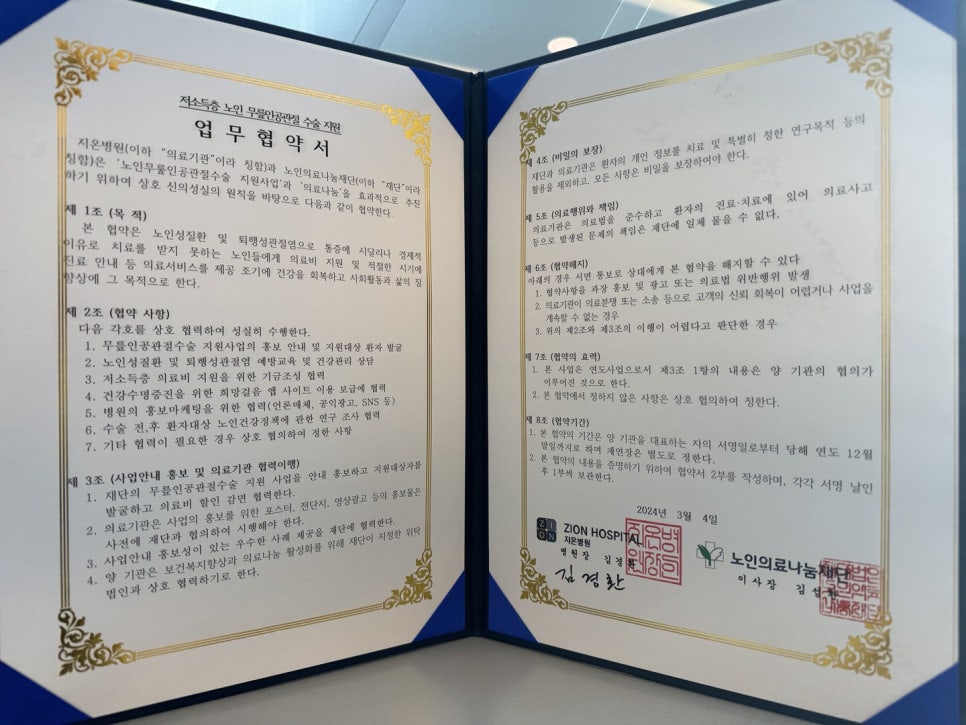 저소득층 노인 무릎인공관절 수술 지원
업무협약서
지온병원(이하 "의료기관"이라 칭함)과 노인의료나눔재단(이하 "재단"이라
칭함)은 '노인무릎인공관절수술 지원사업'과 '의료나눔'을 효과적으로 추진
하기 위하여 상호 신의성실의 원칙을 바탕으로 다음과 같이 협약한다.
제 1조 (목 적)
본 협약은 노인성질환 및 퇴행성관절염으로 통증에 시달리나 경제적
이유로 치료를 받지 못하는 노인들에게 의료비 지원 및 적절한 시기에
진료 안내 등 의료서비스를 제공 조기에 건강을 회복하고 사회활동과 삶의 질
향상에 그 목적으로 한다.
제 2조 (협약 사항)
다음 각호를 상호 협력하여 성실히 수행한다.
1. 무릎인공관절수술 지원사업의 홍보 안내 및 지원대상 환자 발굴
2. 노인성질환 및 퇴행성관절염 예방교육 및 건강관리 상담
3. 저소득층 의료비 지원을 위한 기금조성 협력
4. 건강수명증진을 위한 희망걸음 앱 사이트 이용 보급에 협력
5. 병원의 홍보마케팅을 위한 협력(언론매체, 공익광고, SNS 등)
6. 수술 전,후 환자대상 노인건강정책에 관한 연구 조사 협력
7. 기타 협력이 필요한 경우 상호 협의하여 정한 사항
제 3조 (사업안내 홍보 및 의료기관 협력이행)
1. 재단의 무릎인공관절수술 지원 사업을 안내 홍보하고 지원대상자를
발굴하고 의료비 할인 감면 협력한다.
2. 의료기관은 사업의 홍보를 위한 포스터, 전단지, 영상광고 등의 홍보물은
사전에 재단과 협의하여 시행해야 한다.
3. 사업안내 홍보성이 있는 우수한 사례 제공을 재단에 협력한다.
4. 양 기관은 보건복지향상과 의료나눔 활성화를 위해 재단이 지정한 위탁
법인과 상호 협력하기로 한다.
제 4조 (비밀의 보장)
재단과 의료기관은 환자의 개인 정보를 치료 및 특별히 정한 연구목적 등의
활용을 제외하고, 모든 사항은 비밀을 보장하여야 한다.
제 5조 (의료행위와 책임)
의료기관은 의료법을 준수하고 환자의 진료·치료에 있어 의료사고
등으로 발생된 문제의 책임은 재단에 일체 물을 수 없다.
제 6조 (협약해지)
아래의 경우 서면 통보로 상대에게 본 협약을 해지할 수 있다
1. 협약사항을 과장 홍보 및 광고 또는 의료법 위반행위 발생
2. 의료기관이 의료분쟁 또는 소송 등으로 고객의 신뢰 회복이 어렵거나 사업을
계속할 수 없는 경우
3. 위의 제2조와 제3조의 이행이 어렵다고 판단한 경우
제 7조 (협약의 효력)
1. 본 사업은 연도사업으로서 제3조 1항의 내용은 양 기관의 협의가
이루어진 것으로 한다.
2. 본 협약에서 정하지 않은 사항은 상호 협의하여 정한다.
제 8조 (협약기간)
1. 본 협약의 기간은 양 기관을 대표하는 자의 서명일로부터 당해 연도 12월
말일까지로 하며 재연장은 별도로 정한다.
2. 본 협약의 내용을 증명하기 위하여 협약서 2부를 작성하며, 각각 서명 날인
후 1부씩 보관한다.
2024년 3월 4일
ZION
ZION HOSPITAL
지온병원
병원장 김경환
김경환
노인의료나눔재단
이사장 김성환